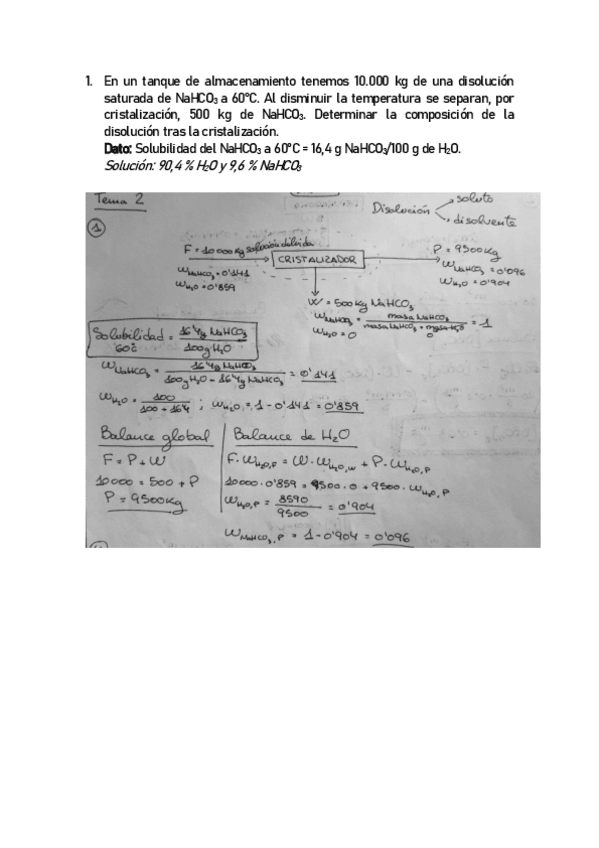 1. En un tanque de almacenamiento tenemos 10.000 kg de una disolución
saturada de NaHCO₃ a 60ºC. Al disminuir la temperatura se separan, por
cristalización, 500 kg de NaHCO₃. Determinar la composición de la
disolución tras la cristalización.
Dato: Solubilidad del NaHCO₃ a 60ºC = 16,4 g NaHCO₃/100 g de H₂O.
Solución: 90,4 % H₂O y 9,6 % NaHCO₃
Tema 2
Disolución
soluto
disolvente
1
F = 10000 kg solución diluida
CRISTALIZADOR
P = 9500 kg
W NaHCO₃ = 0'141
W H₂O = 0'859
W NaHCO₃ = 0'096
W H₂O = 0'904
W = 500 kg NaHCO₃
W NaHCO₃ = masa NaHCO₃ / masa NaHCO₃ + masa H₂O = 1
0
W H₂O = 0
Solubilidad 60ºC = 16'4g NaHCO₃ / 100g H₂O
W NaHCO₃ = 16'4g NaHCO₃ / 100g H₂O - 16'4g NaHCO₃ = 0'141
W H₂O = 100 / 100 + 16'4 ; W H₂O = 1 - 0'141 = 0'859
Balance global
F = P + W
10000 = 500 + P
P = 9500kg
Balance de H₂O
F · W H₂O,F = W · W H₂O,W + P · W H₂O,P
10000 · 0'859 = 9500 · 0 + 9500 · W H₂O,P
W H₂O,P = 8590 / 9500 = 0'904
W NaHCO₃,P = 1 - 0'904 = 0'096